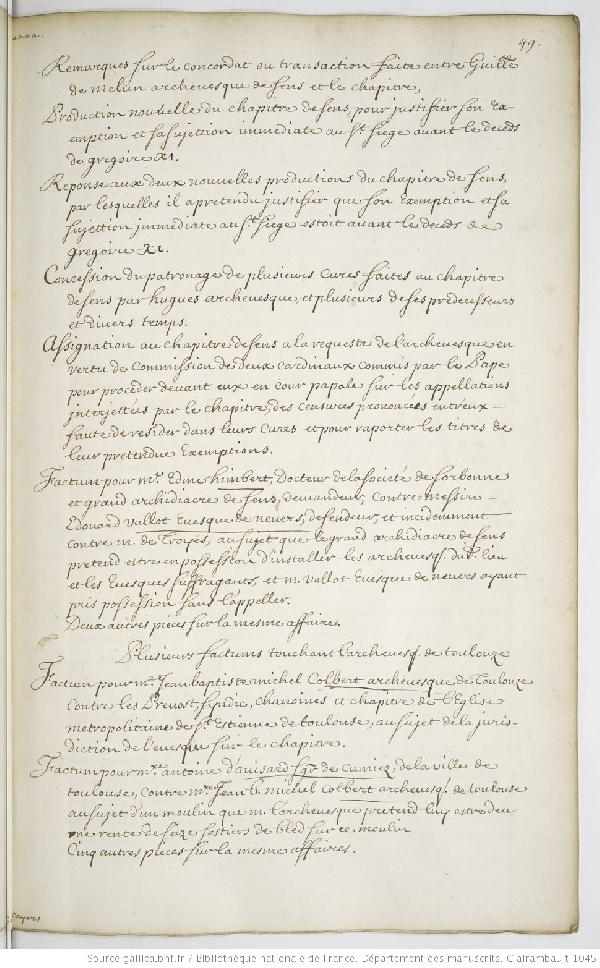 99.
Remarques sur le concordat ou transaction faite entre Guille
de melun archevesque de sens et le chapitre,
Production nouvelle du chapitre de sens, pour justifier son ex
emption et sa sujettion immediate au St Siege avant le deceds
de gregoire XI.
Reponse aux deux nouvelles productions du chapitre de sens
par lesquelles il a pretendu justifier que son Exemption et sa
sujettion immediate au St. siege estoit avant le deceds de
gregoire XI.
Concession du patronage de plusieurs Cures faites au chapitre
de sens par hugues archevesque, et plusieurs de ses predecesseurs
et divers temps.
Assignation au chapitre de sens a la requeste de l'archevesque en
vertu de Commission de deux Cardinaux commis par le Pape
pour proceder devant eux en cour papale sur les appellations
interjettées par le chapitre, des censures prononcées entr'eux
faute de resider dans leurs Cures et pour raporter les titres de
leur pretendue Exemptions.
Factum pour mr. Edme himbert, Docteur de la Societé de Sorbonne
et grand archidiacre de Sens, demandeur, Contre Messire
Edouard vallot Evesque de nevers, defendeur, et incidemment
contre m. de Troyes, au sujet que le grand archidiacre de sens
pretend estre en possession d'installer les archevesq. dud. lieu
et les Evesques suffragants, et m. vallot Evesque de nevers ayant
pris possession sans l'appeller.
Deux autres pieces sur la mesme affaire.
Plusieurs factums touchant l'archevesq. de toulouze
Factum pour mre. Jean baptiste michel Colbert archevesque de Toulouze
Contre les Prevost, sindic, Chanoines et chapitre de l'Eglise
metropolitaine de St. Estienne de toulouse, au sujet de la juris-
diction de l'evesque sur le chapitre.
Factum pour mre. antoine d'avisard sgr de Cumiez, de la ville de
toulouse, Contre mre Jean b. michel Colbert archevesq. de toulouse
au sujet d'un moulin que m. l'archevesque pretend luy estre deu
une rente de seize sestiers de bled sur ce moulin
Cinq autres pieces sur la mesme affaires.
Source gallica.bnf.fr / Bibliothèque nationale de France. Département des manuscrits. Clairambault 1045